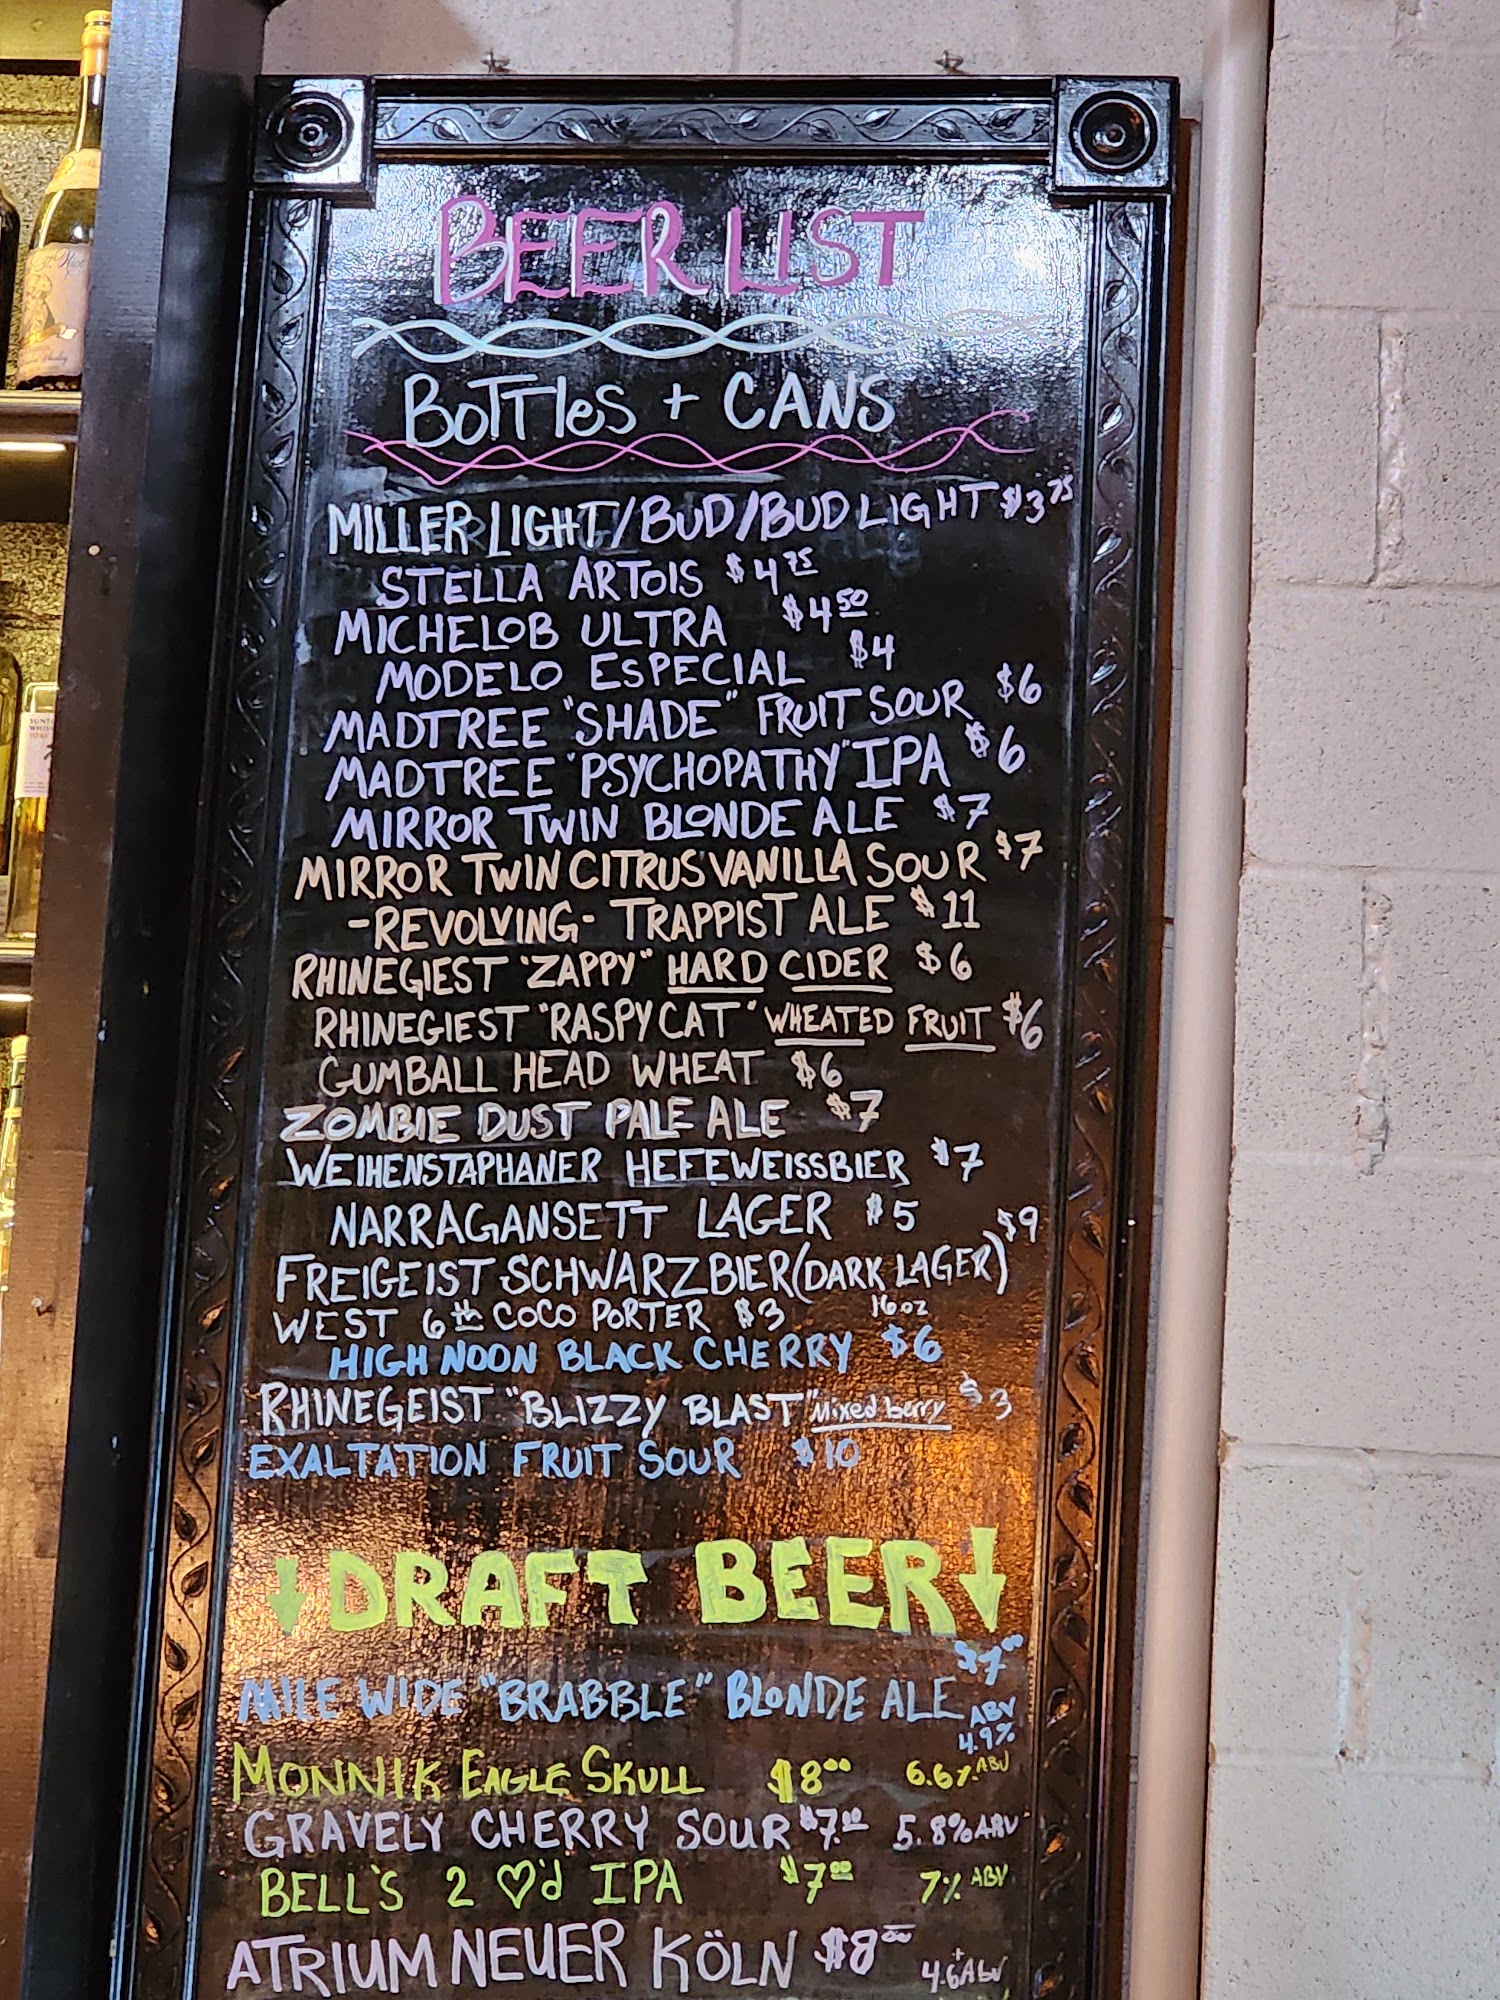 BEER LIST
BOTTlES + CANS
MILLER LIGHT/BUD/BUD LIGHT $3 75
STELLA ARTOIS $4 75
MICHELOB ULTRA $4 50
MODELO ESPECIAL $4
MADTREE "SHADE" FRUIT SOUR $6
MADTREE "PSYCHOPATHY" IPA $6
MIRROR TWIN BLONDE ALE $7
MIRROR TWIN CITRUS VANILLA SOUR $7
-REVOLVING- TRAPPIST ALE $11
RHINEGIEST "ZAPPY" HARD CIDER $6
RHINEGIEST "RASPY CAT" WHEATED FRUIT $6
GUMBALL HEAD WHEAT $6
ZOMBIE DUST PALE ALE $7
WEIHENSTAPHANER HEFEWEISSBIER $7
NARRAGANSETT LAGER $5
FREIGEIST SCHWARZBIER (DARK LAGER) $9
WEST 6th COCO PORTER $3 16oz
HIGH NOON BLACK CHERRY $6
RHINEGEIST "BLIZZY BLAST" Mixed berry $3
EXALTATION FRUIT SOUR $10
↓DRAFT BEER↓
MILE WIDE "BRABBLE" BLONDE ALE $7 00 ABV 4.9%
MONNIK EAGLE SKULL $8 00 6.6% ABV
GRAVELY CHERRY SOUR $7. 5.8% ABV
BELL'S 2 ♡'d IPA $7 00 7% ABV
ATRIUM NEUER KÖLN $8 00 4.6 ABV